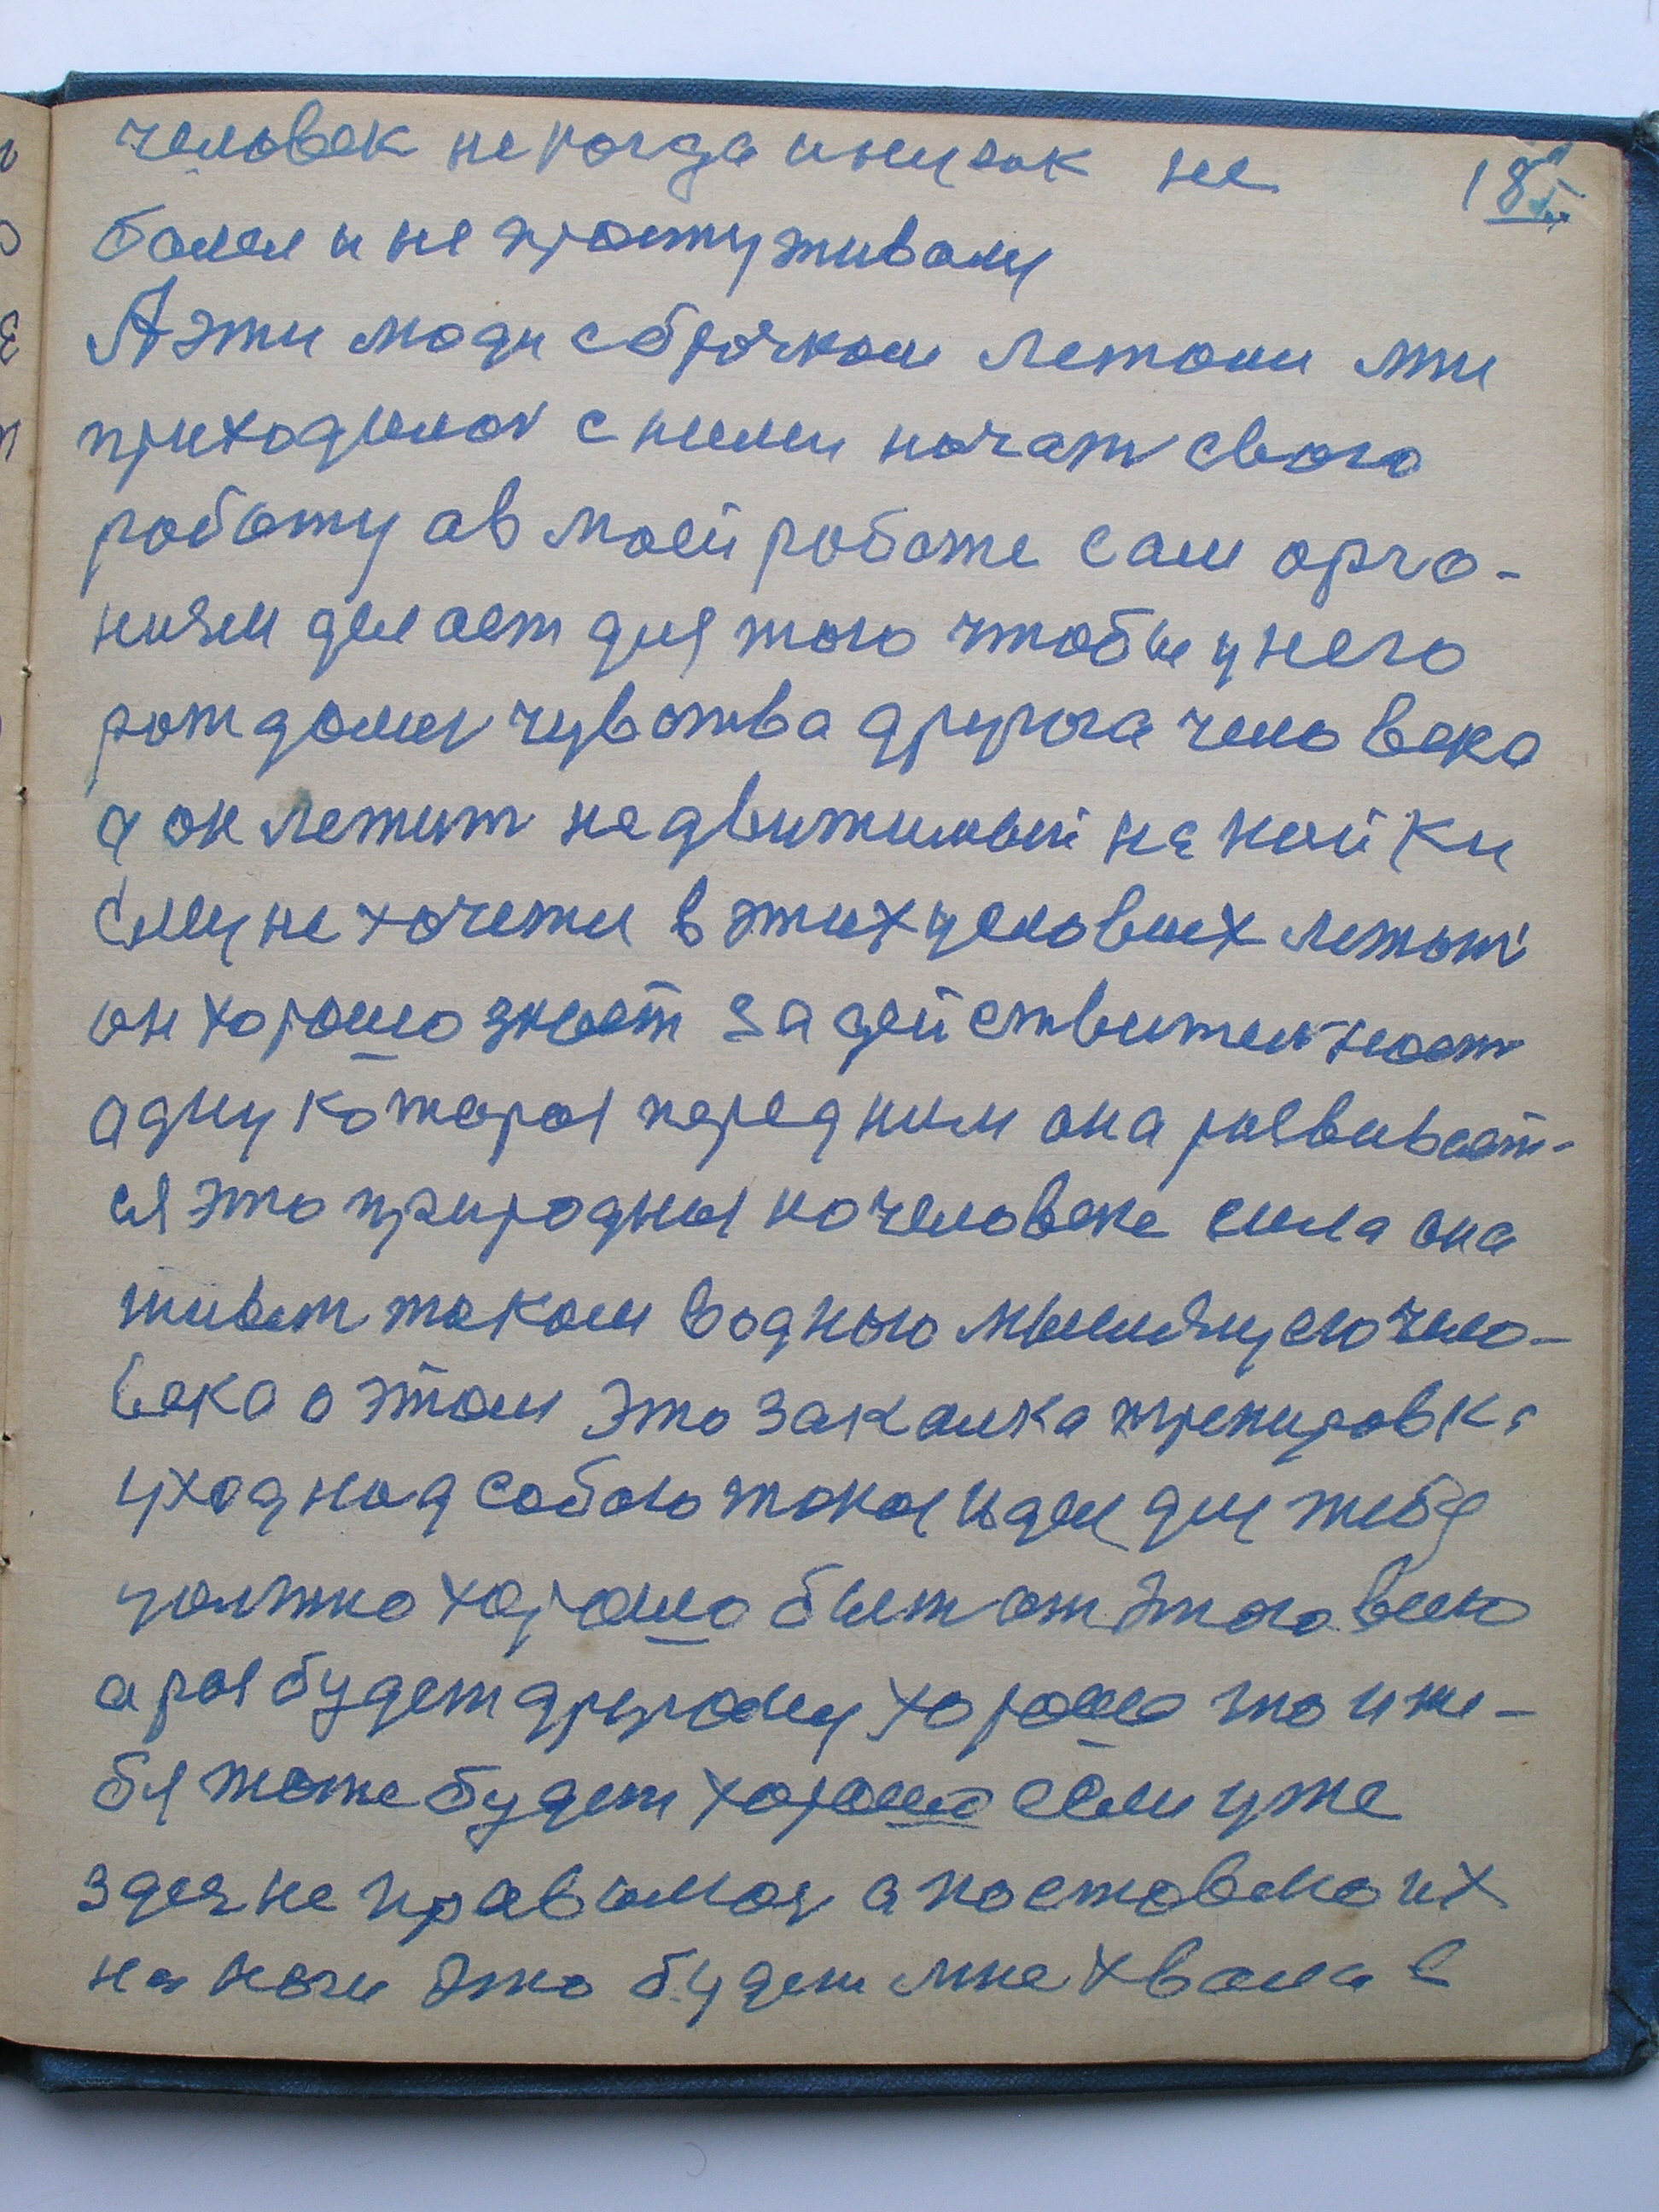 человек некогда иниязык не 18
болел и не простуживалу
А эти люди с браком летоми мти
приходилося с ними начат свою
работу а в моей работе сам орга-
низм делает для того чтобы у него
рождолися чувства другога человека
а он лежит недвижимый на койки
Ему не хочется в этих условиях лежат
он хорошо знает за действительност
адну которая перед ним она развивает-
ся это природная но человеке сила она
живет током водною мыслящую чело-
века о этом это закалка тренировка
уход над собою токая идея для тебе
должно хорошо быт от этого всего
а раз будет другому хорошо то и те-
бя тоже будет хорошо если уже
здеся не правился а поставлю их
на ноги это будет мне хвала в